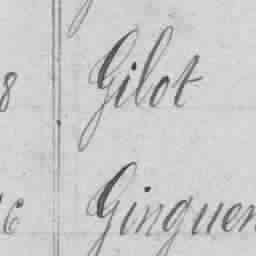 8 Gilot
6 Ginguen